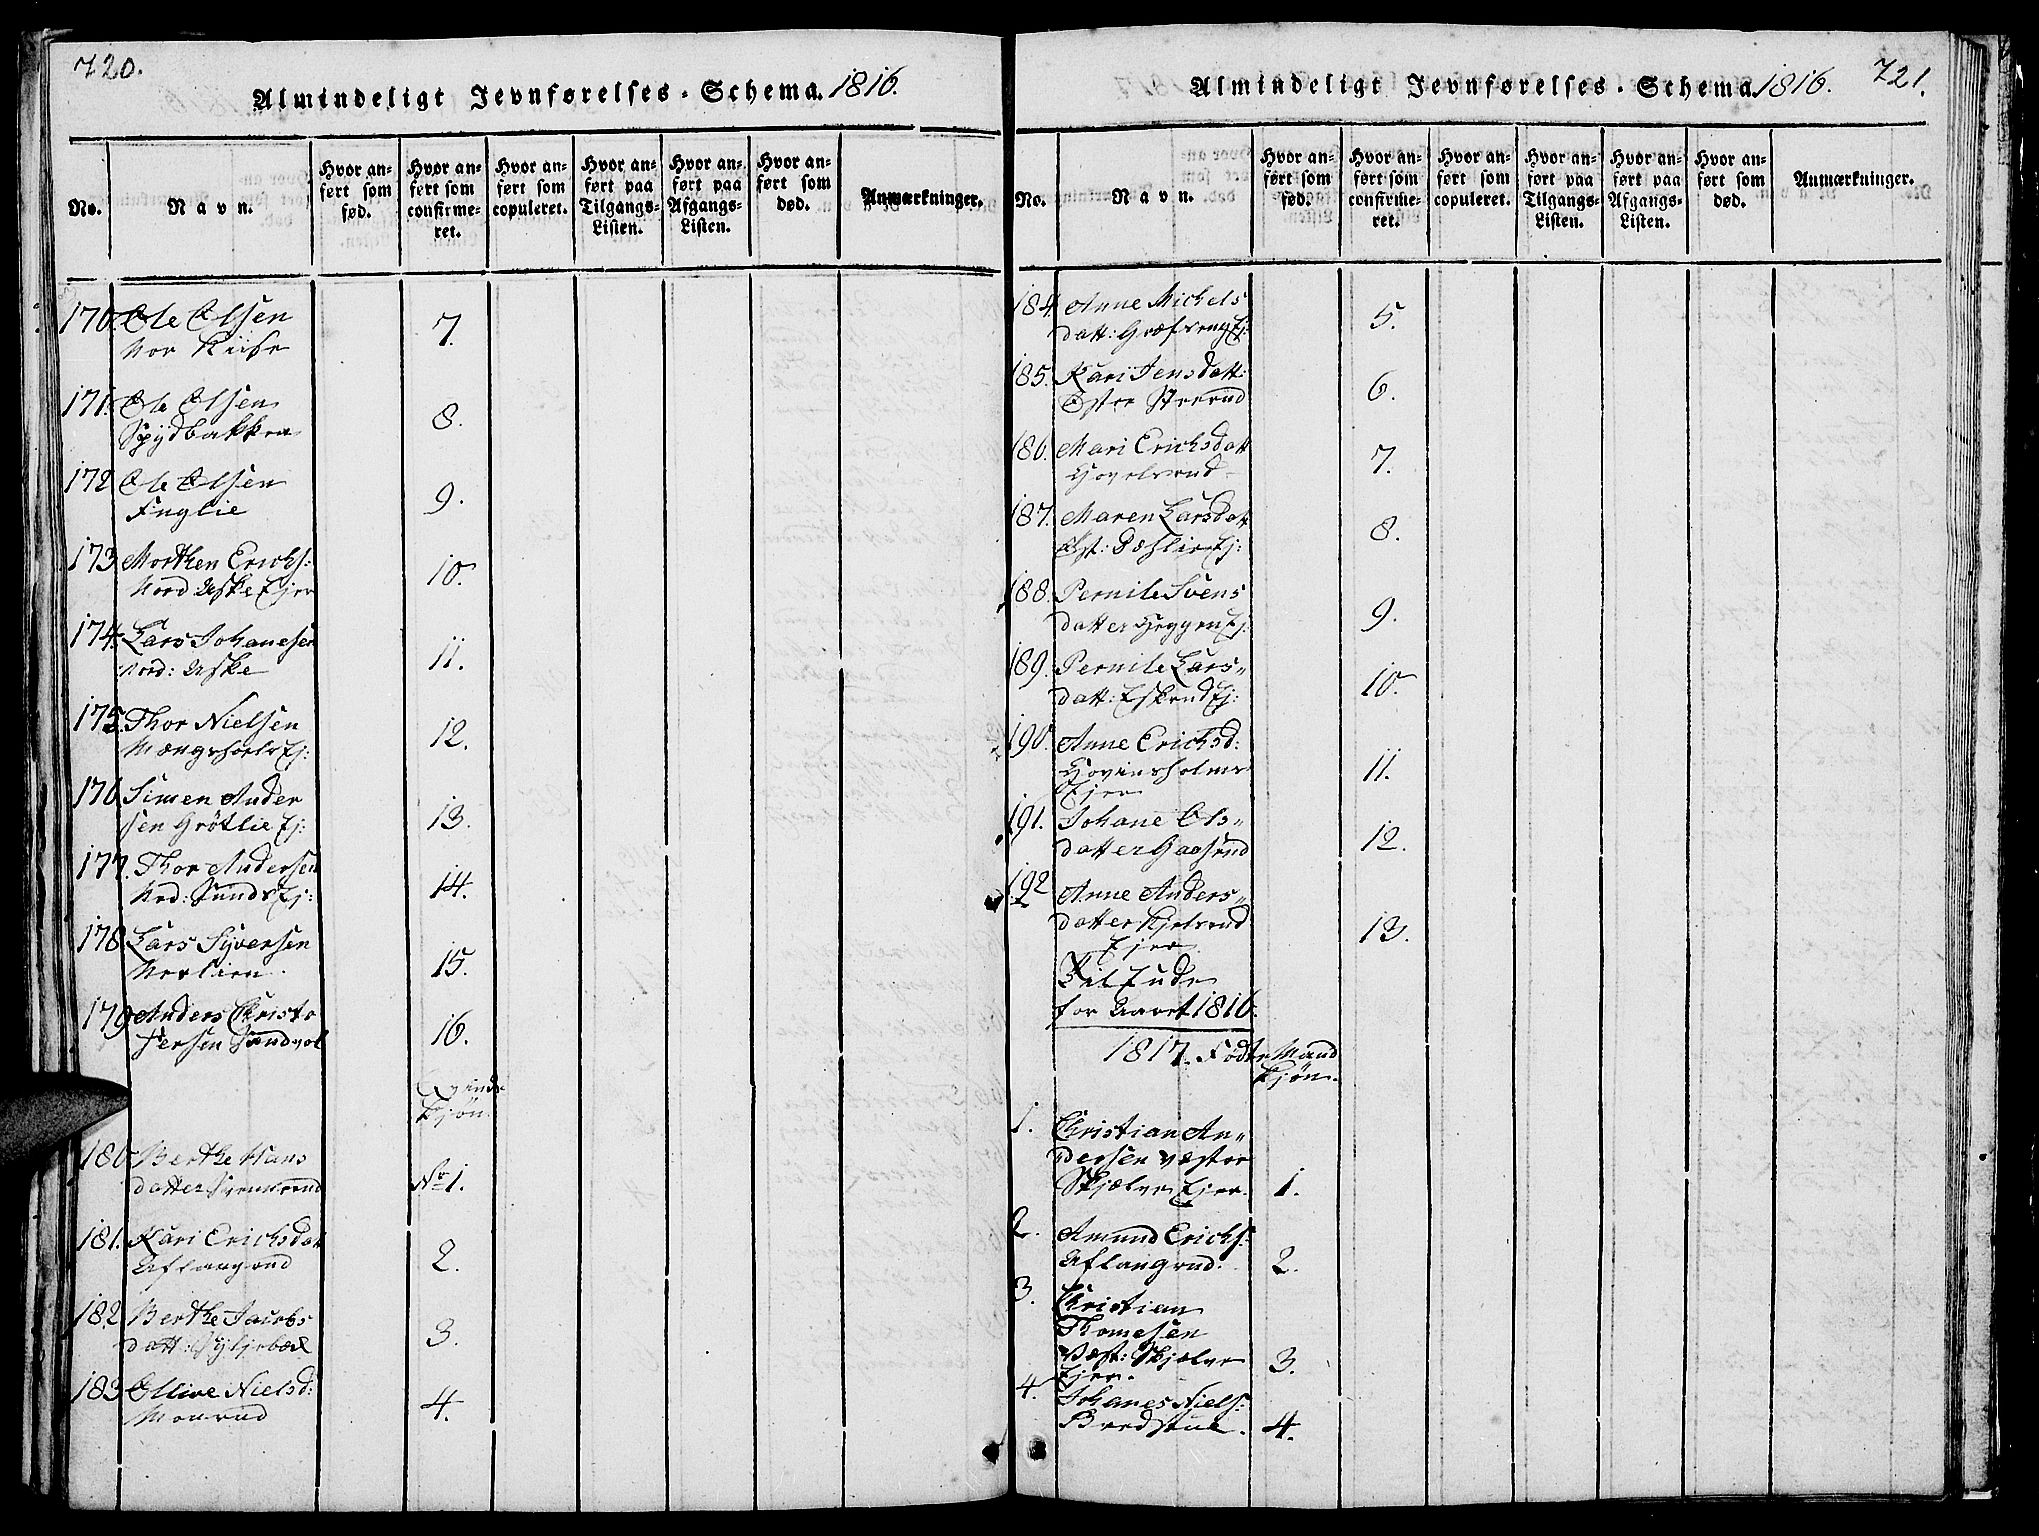 720.
Almindeligt Jevnførelses-Schema. 1816.
No. Navn. Hvor anført som fød. Hvor anført som confirmeret. Hvor anført som copuleret. Hvor anført paa Tilgangs-Listen. Hvor anført paa Afgangs-Listen. Hvor anført som død. Anmærkninger.
170. Ole Olsen
Nor Kiise 7.
171. Ole Olsen
Spydbakken 8.
172 Ole Olsen
Englie 9.
173 Morthen Erichs:
Nord Aske Ejer 10.
174. Lars Johanesen
Nord: Aske 11.
175. Thor Nielsen
Mængshoels Ej: 12.
176 Simen Ander
sen Grötlie Ej: 13.
177. Thor Andersen
Nrd: Sunds Ej: 14.
178. Lars Syversen
Norlien. 15.
179 Anders Christo
fersen Sandvol 16.
Qvinde
Kjön.
180 Berthe Hans
datter No 1.
181. Kari Erichsdatt
Aflangrud 2.
182 Berthe Jacobs
datt: Syljebæk 3.
183 Ollive Nielsd:
Monrud 4.
Almindeligt Jevnførelses-Schema. 1816. 721.
No. Navn. Hvor anført som fød. Hvor anført som confirmeret. Hvor anført som copuleret. Hvor anført paa Tilgangs-Listen. Hvor anført paa Afgangs-Listen. Hvor anført som død. Anmærkninger.
184. Anne Michels
datt: Græfseng Ej: 5.
185. Kari Jensdatt:
Østre 6.
186. Mari Erichsdatt
Hovelsrud 7.
187. Maren Larsdatt
Øst: Dæhlie Ej: 8.
188. Pernile Svens
datter Heggen Ej: 9.
189. Pernile Lars-
datt: Eskerud Ej: 10.
190. Anne Erichsd:
Hovinsholms
Ejer 11.
191. Johane Ols-
datter Gaasrud 12.
192 Anne Anders-
datter Kjelsrud
Ejer 13.
Til Ende
for Aaret 1816.
1817. Födte Mand
Kjön.
1. Christian An-
dersen Væstre
Skjælve Ejer. 1.
2. Amund Erichs:
Aflangrud. 2.
3. Christian
Thomesen
Væst: Skjælve
Ejer. 3.
4. Johanes Niels:
Bredstue. 4.